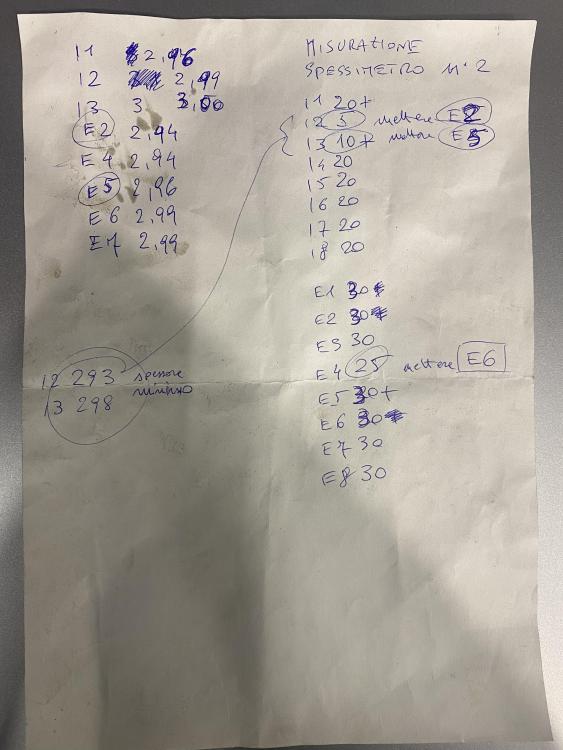 I1 2,96
I2 2,99
I3 3 3,00
E2 2,94
E4 2,94
E5 2,96
E6 2,99
E7 2,99
I2 293 spessore
I3 298 minimo
MISURAZIONE
SPESSIMETRO N° 2
I1 20+
I2 5 mettere E2
I3 10+ mettere E5
I4 20
I5 20
I6 20
I7 20
I8 20
E1 30
E2 30
E3 30
E4 25 mettere E6
E5 30+
E6 30
E7 30
E8 30